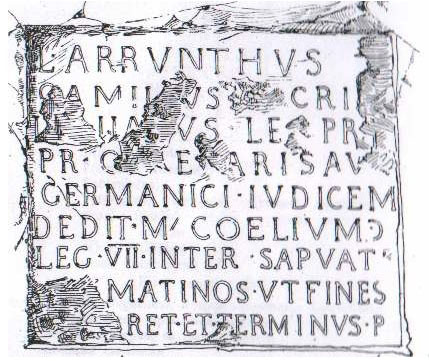 L ARRVNTHVS
CAMILLVS SCRI
VS LEG PR
PR C CAESARIS AV
GERMANICI·IVDICEM
DEDIT·M' COELIVM Ɔ
LEG·VII·INTER·SAPVAT
MATINOS·VT FINES
RET·ET·TERMINVS·P